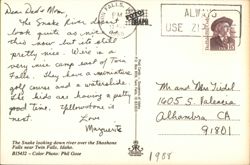 Dear Dad & Mom,
The Snake River doesn't
look quite as nice as
this now but its still
pretty nice. We're in a
very nice camp east of Twin
Falls. They have a miniature
golf course and a waterslide.
The kids are having a pretty
good time. Yellowstone is
next.
Love
Marguerite
The Snake looking down river over the Shoshone
Falls near Twin Falls, Idaho.
B15432 - Color Photo: Phil Gooe
FALLS,
PM
ALWAYS
USE ZIP
Mr and Mrs
1605 S. Valencia
Alhambra CA
91801
1988